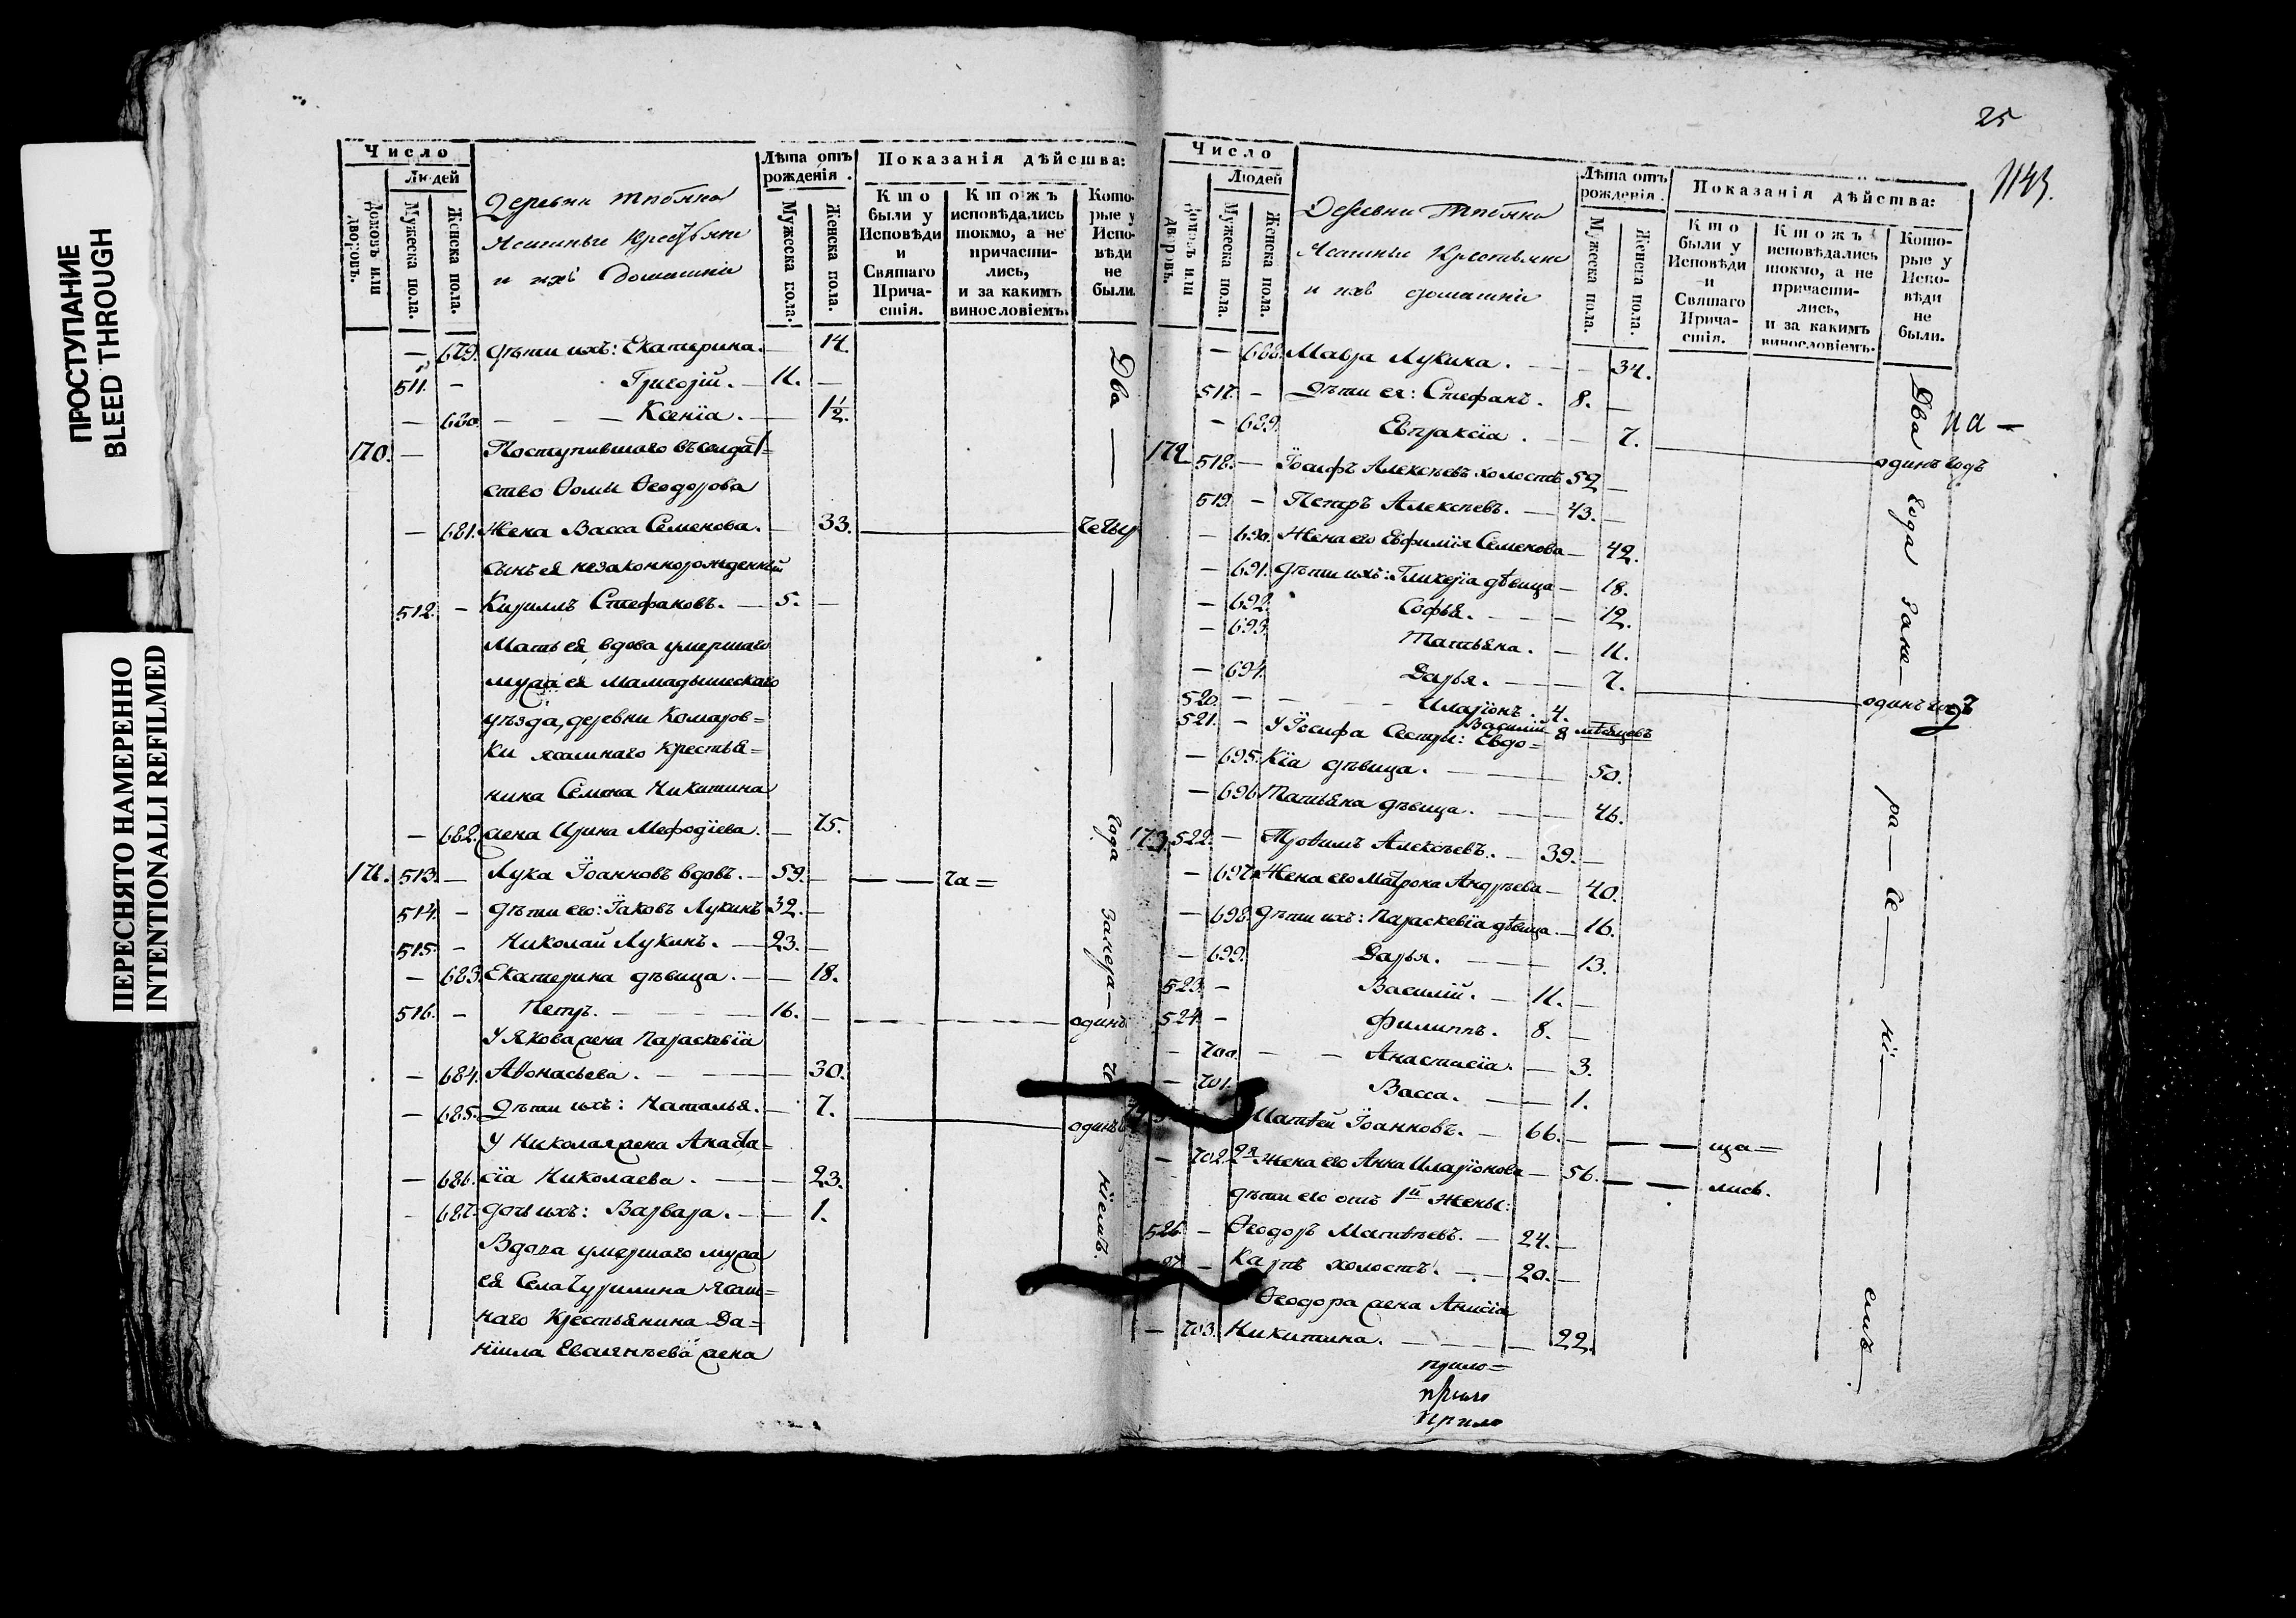 ПРОСТУПАНИЕ
BLEED THROUGH
ПЕРЕСНЯТО НАМЕРЕННО
INTENTIONALLI REFILMED
Число
Людей
Домовъ или дворовъ.
Мужеска пола.
Женска пола.
Деревни
Ясашные
и ихъ домашніе
Лѣта отъ рожденія.
Мужеска пола.
Женска пола.
Показанія дѣйства:
Кто были у Исповѣди и Святаго Причастія.
Ктожъ исповѣдались токмо, а не причастились, и за какимъ винословіемъ.
Которые у Исповѣди не были.
— 679. Дѣти ихъ: Екатерина. — 14.
511. — Григорій. — 11. —
— 680. — — Ксенїа. — 1½.
170. — Поступившаго въ солдат=
ство Ѳомы Ѳеодорова
— 681. Жена Васса Семенова. — 33.
сынъ ея незаконнорожденный
512. — Кириллъ Стефановъ. — 5. —
Мать ея вдова умершаго
мужа ея Мамадышескаго
уѣзда, деревни Комаров=
ки ясашнаго крестья=
нина Семена Никитина
— 682. жена Ирина Мефодїева. — 75.
171. 513. — Лука Їоанновъ вдовъ. — 59. — ча=
514. — Дѣти его: Їаковъ Лукинъ 32. —
515. — Николай Лукинъ. — 23. —
— 683. Екатерина дѣвица. — — 18.
516. — Петръ. — — — 16. — одинъ
У Якова жена Параскевїа
— 684. Аѳонасьева. — — — 30.
— 685. Дѣти ихъ: Наталья. — 7. одинъ
У Николая жена Анаста=
— 686. сїа Николаева. — — 23.
— 687. дочь ихъ: Варвара. — — 1.
Вдова умершаго мужа
ея Села Чурилина ясаш=
наго Крестьянина Да=
нїила жена
Два — года
25
1143.
Число
Людей
Домовъ или дворовъ.
Мужеска пола.
Женска пола.
Деревни
Ясашные Крестьяне
и ихъ домашніе
Лѣта отъ рожденія.
Мужеска пола.
Женска пола.
Показанія дѣйства:
Кто были у Исповѣди и Святаго Причастія.
Ктожъ исповѣдались токмо, а не причастились, и за какимъ винословіемъ.
Которые у Исповѣди не были.
— 688. Мавра Лукина. — — 34.
517. — Дѣти ея: Стефанъ. 8. —
— 689. Евпраксїа. — — 7. одинъ годъ
172. 518. — Їосифъ Алексѣевъ холостъ 52 —
519. — Петръ Алексѣевъ. — 43. —
— 690. Жена его Евфимїя Семенова — 42.
— 691. Дѣти ихъ: Гликерїа дѣвица — 18.
— 692. Софья. — — — 12.
— 693. Татьяна. — — 11.
— 694. Дарья. — — 7. одинъ годъ
520. — — — Иларїонъ. 4.
Василїй 8 мѣсяцевъ
521. — У Їосифа Сестры: Евдо=
— 695. кїа дѣвица. — — 50.
— 696. Татьяна дѣвица. — — 46.
173. 522. — Трофимъ Алексѣевъ. — 39. —
— 697. Жена его Матрона Андрѣева — 40.
— 698. Дѣти ихъ: Параскевїа дѣвица. — 16.
— 699. Дарья. — — 13.
523. — Василїй. — 11. —
524. — Филиппъ. 8. —
— 700. — — Анастасїа. — 3.
— 701. Васса. — — 1.
Матѳей Їоанновъ. — 66. — ща=
— 702. 2я Жена его Анна Иларїонова — 56. лись.
дѣти его отъ 1й Жены:
526. — Ѳеодоръ Матѳѣевъ. — 24. —
— Карпъ холостъ. — — 20. —
Ѳеодора жена Анисїа
— 703. Никитина. — — — 22.
Два — года
на —
прило=
прило
прило